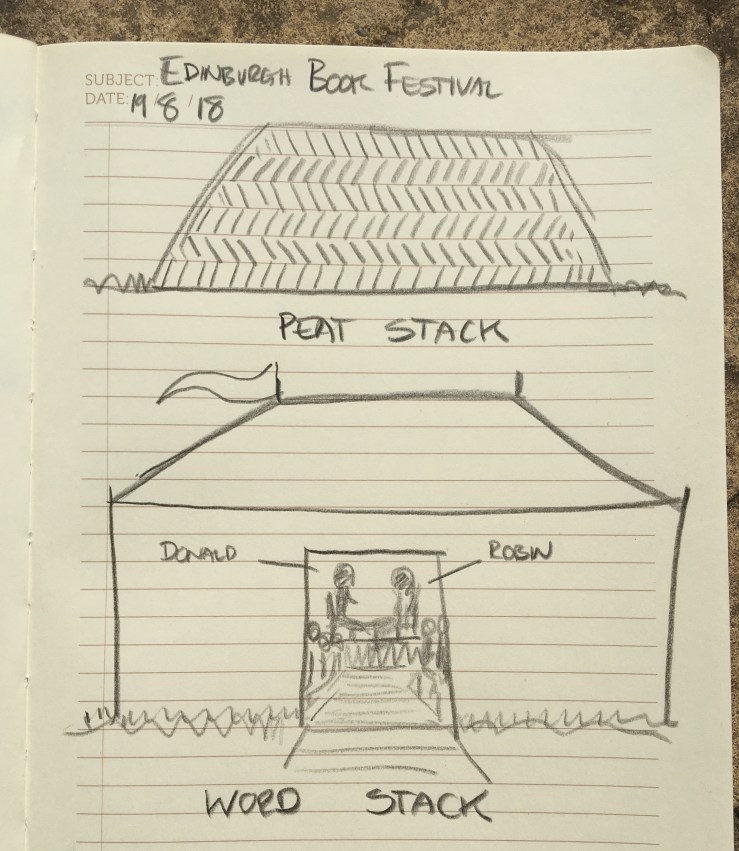 SUBJECT: EDINBURGH BOOK FESTIVAL
DATE: 19/8/18
PEAT STACK
DONALD
ROBIN
WORD STACK